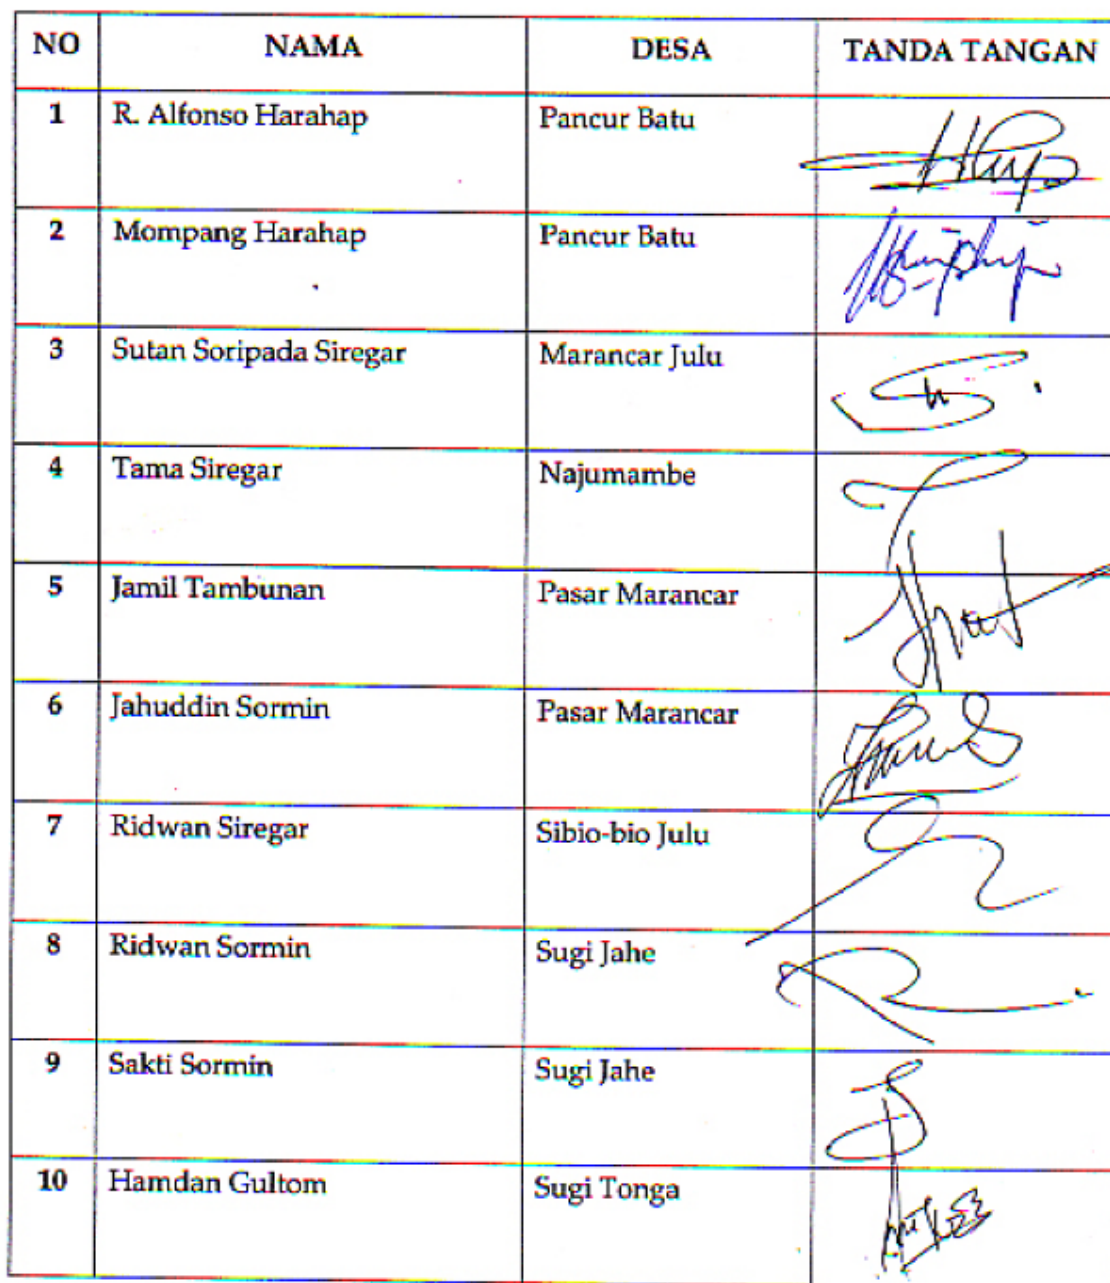 NO NAMA DESA TANDA TANGAN
1 R. Alfonso Harahap Pancur Batu
2 Mompang Harahap Pancur Batu
3 Sutan Soripada Siregar Marancar Julu
4 Tama Siregar Najumambe
5 Jamil Tambunan Pasar Marancar
6 Jahuddin Sormin Pasar Marancar
7 Ridwan Siregar Sibio-bio Julu
8 Ridwan Sormin Sugi Jahe
9 Sakti Sormin Sugi Jahe
10 Hamdan Gultom Sugi Tonga